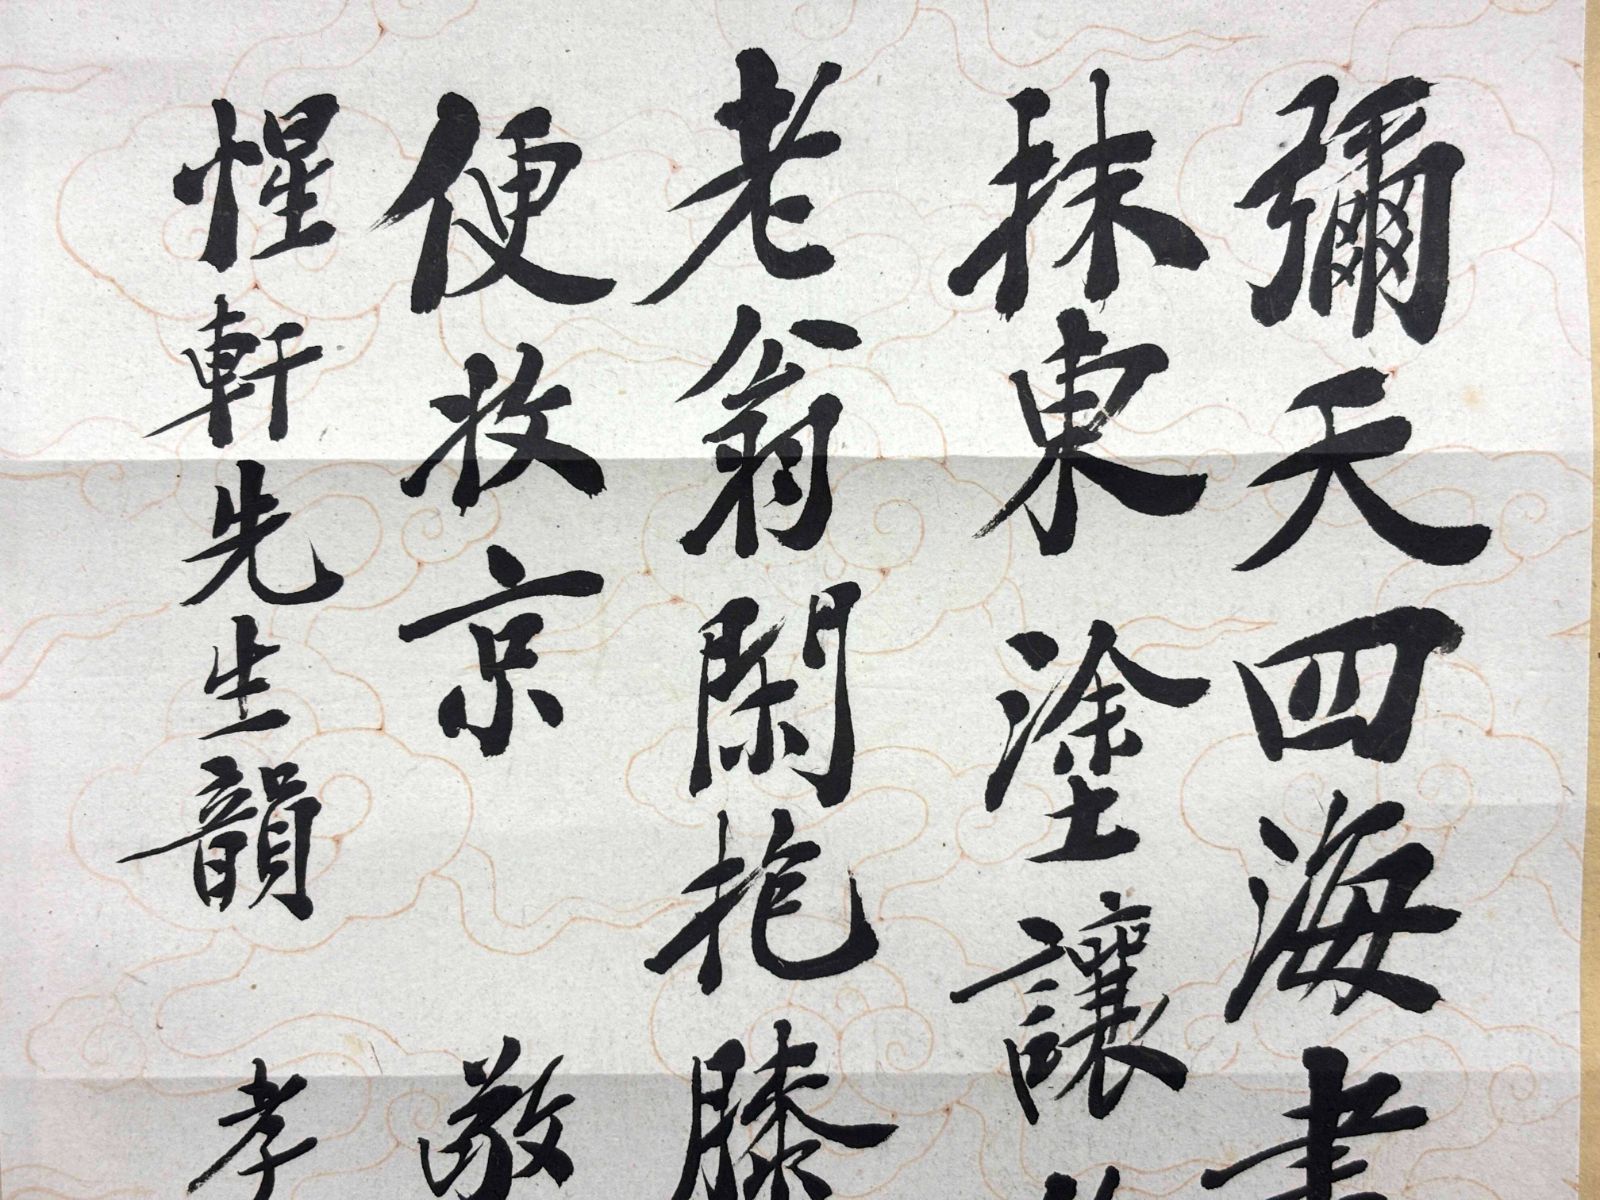 彌天四海書
抹東塗讓
老翁閑抱膝
便收京 敬
惺軒先生韻 孝